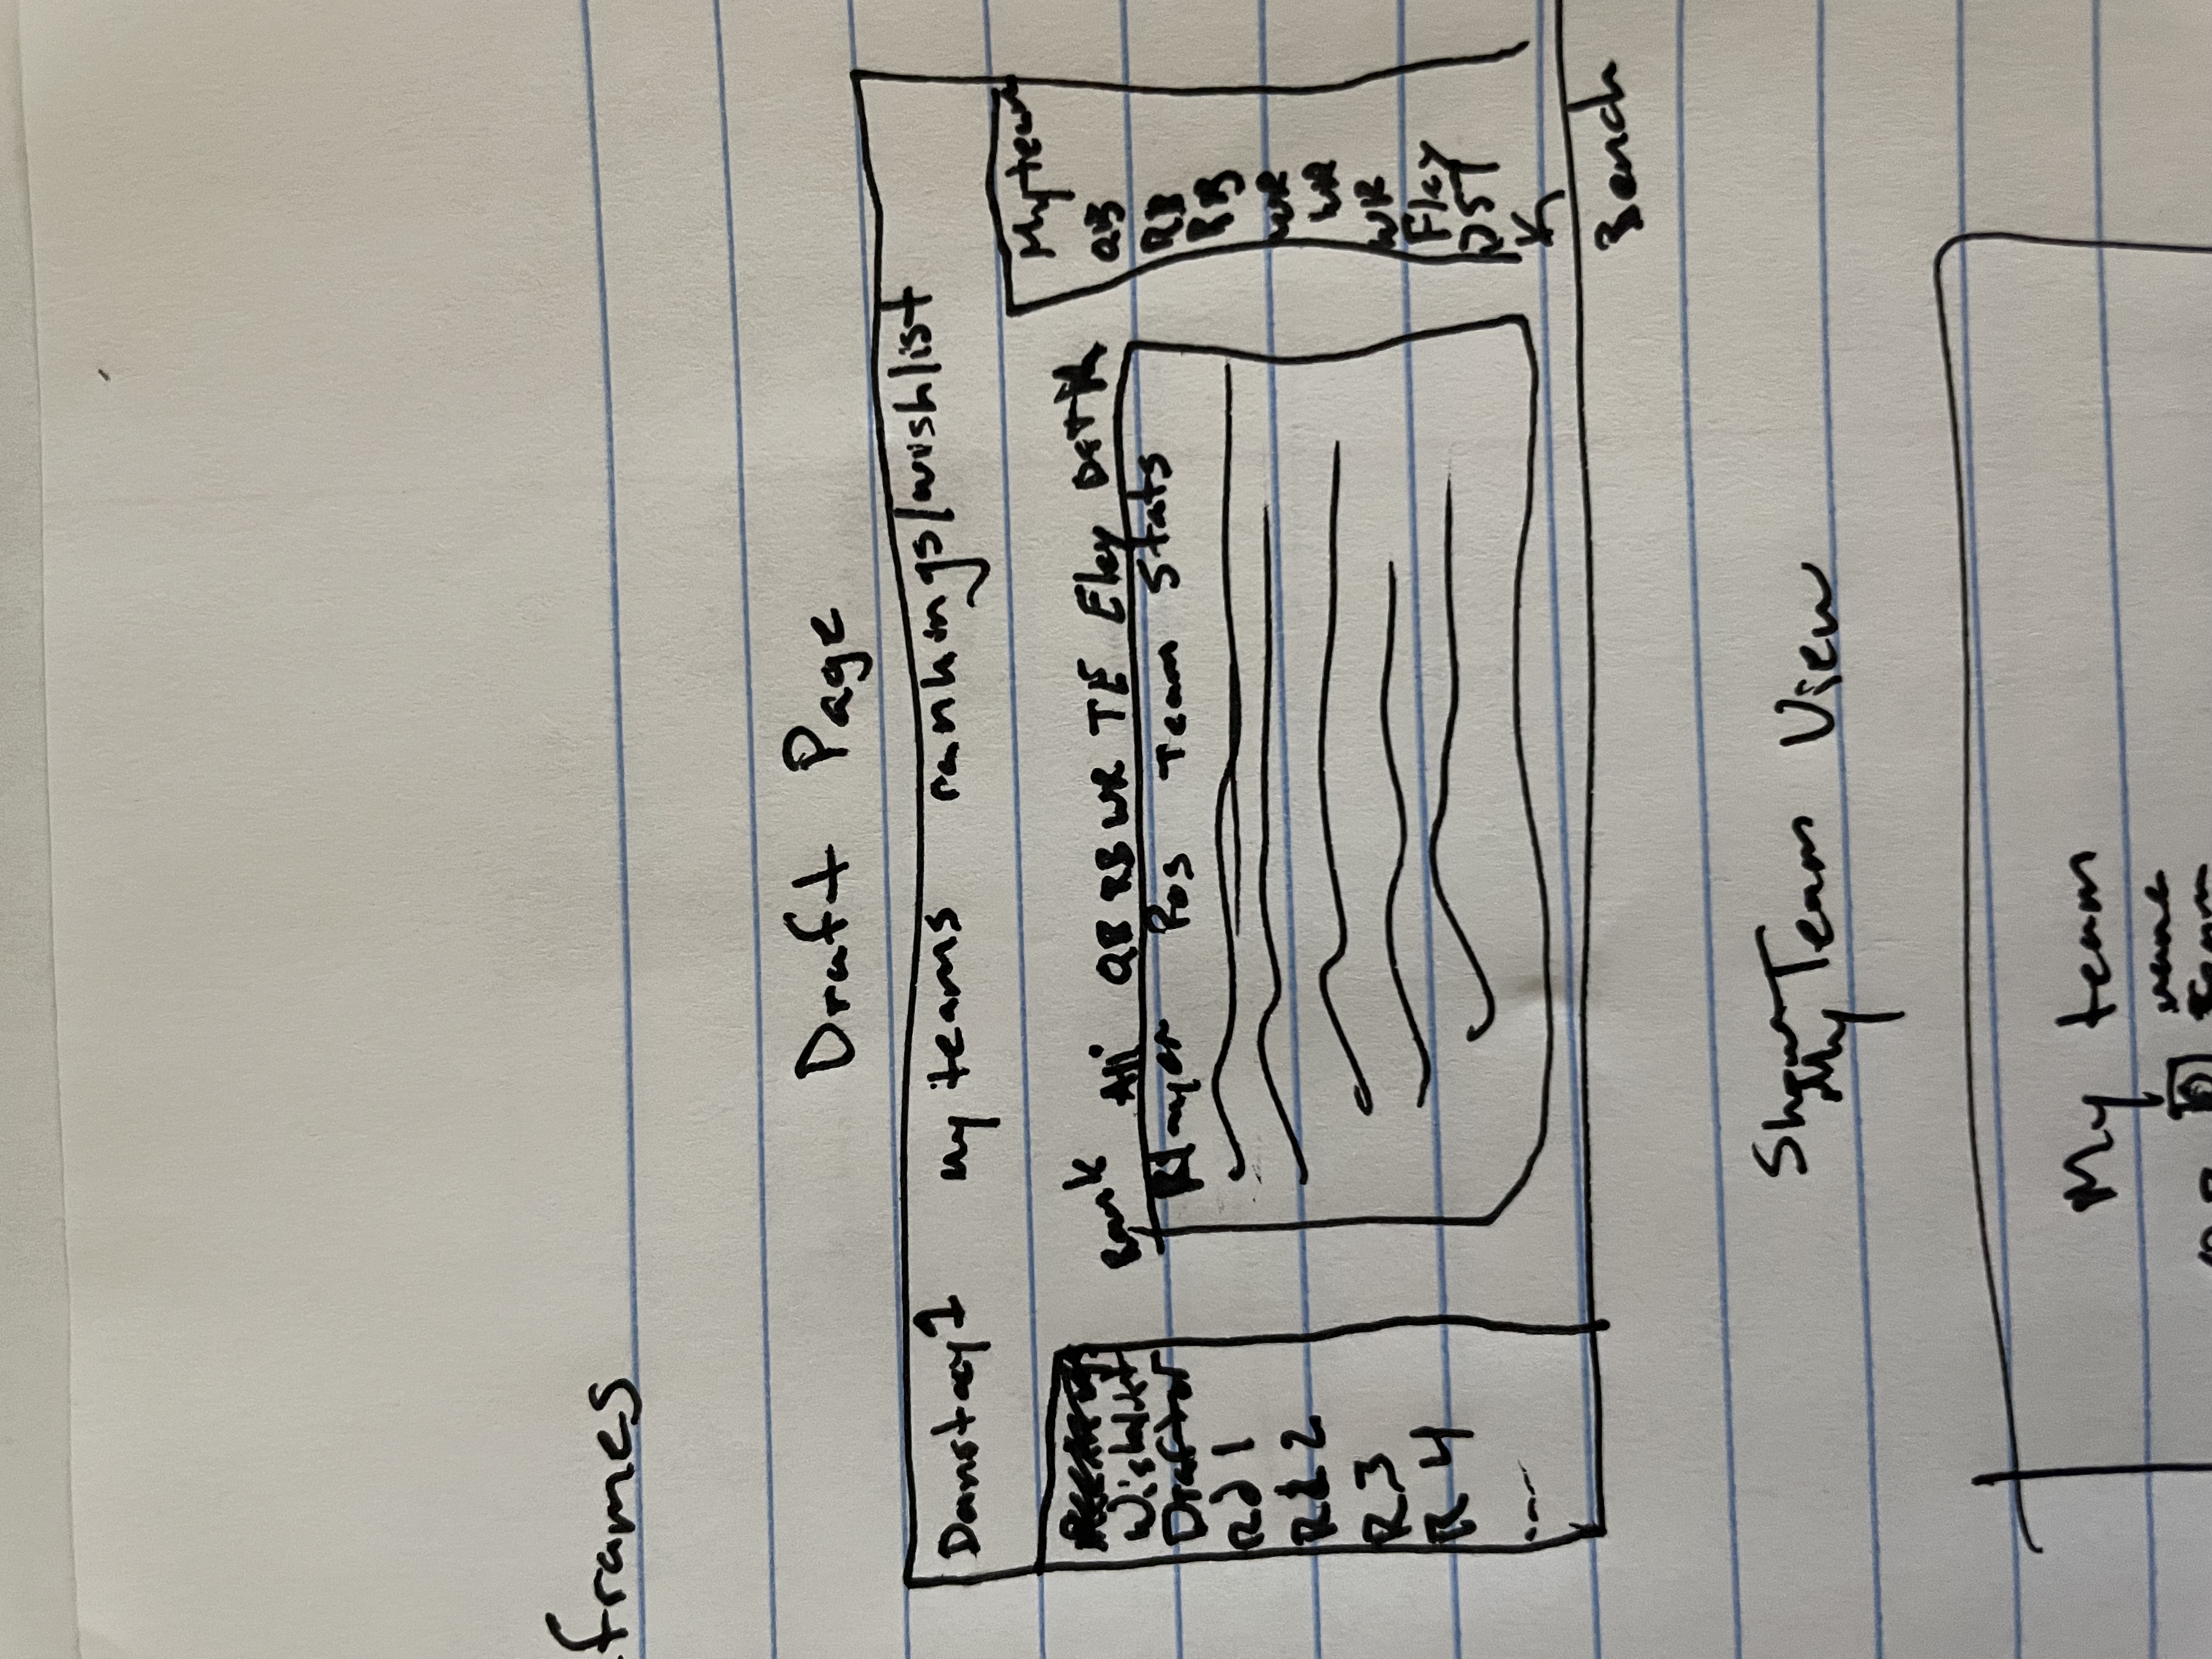 frames
Draft Page
Danstacy1 My teams rankings/wishlist
Wishlist
Draftor
Rd 1
Rd 2
R 3
R 4
Rank All QB RB WR TE Flex DST K
Player Pos Team Stats
My team
QB
RB
RB
WR
WR
WR
Flex
DST
K
Bench
Show My Team View
My team
name